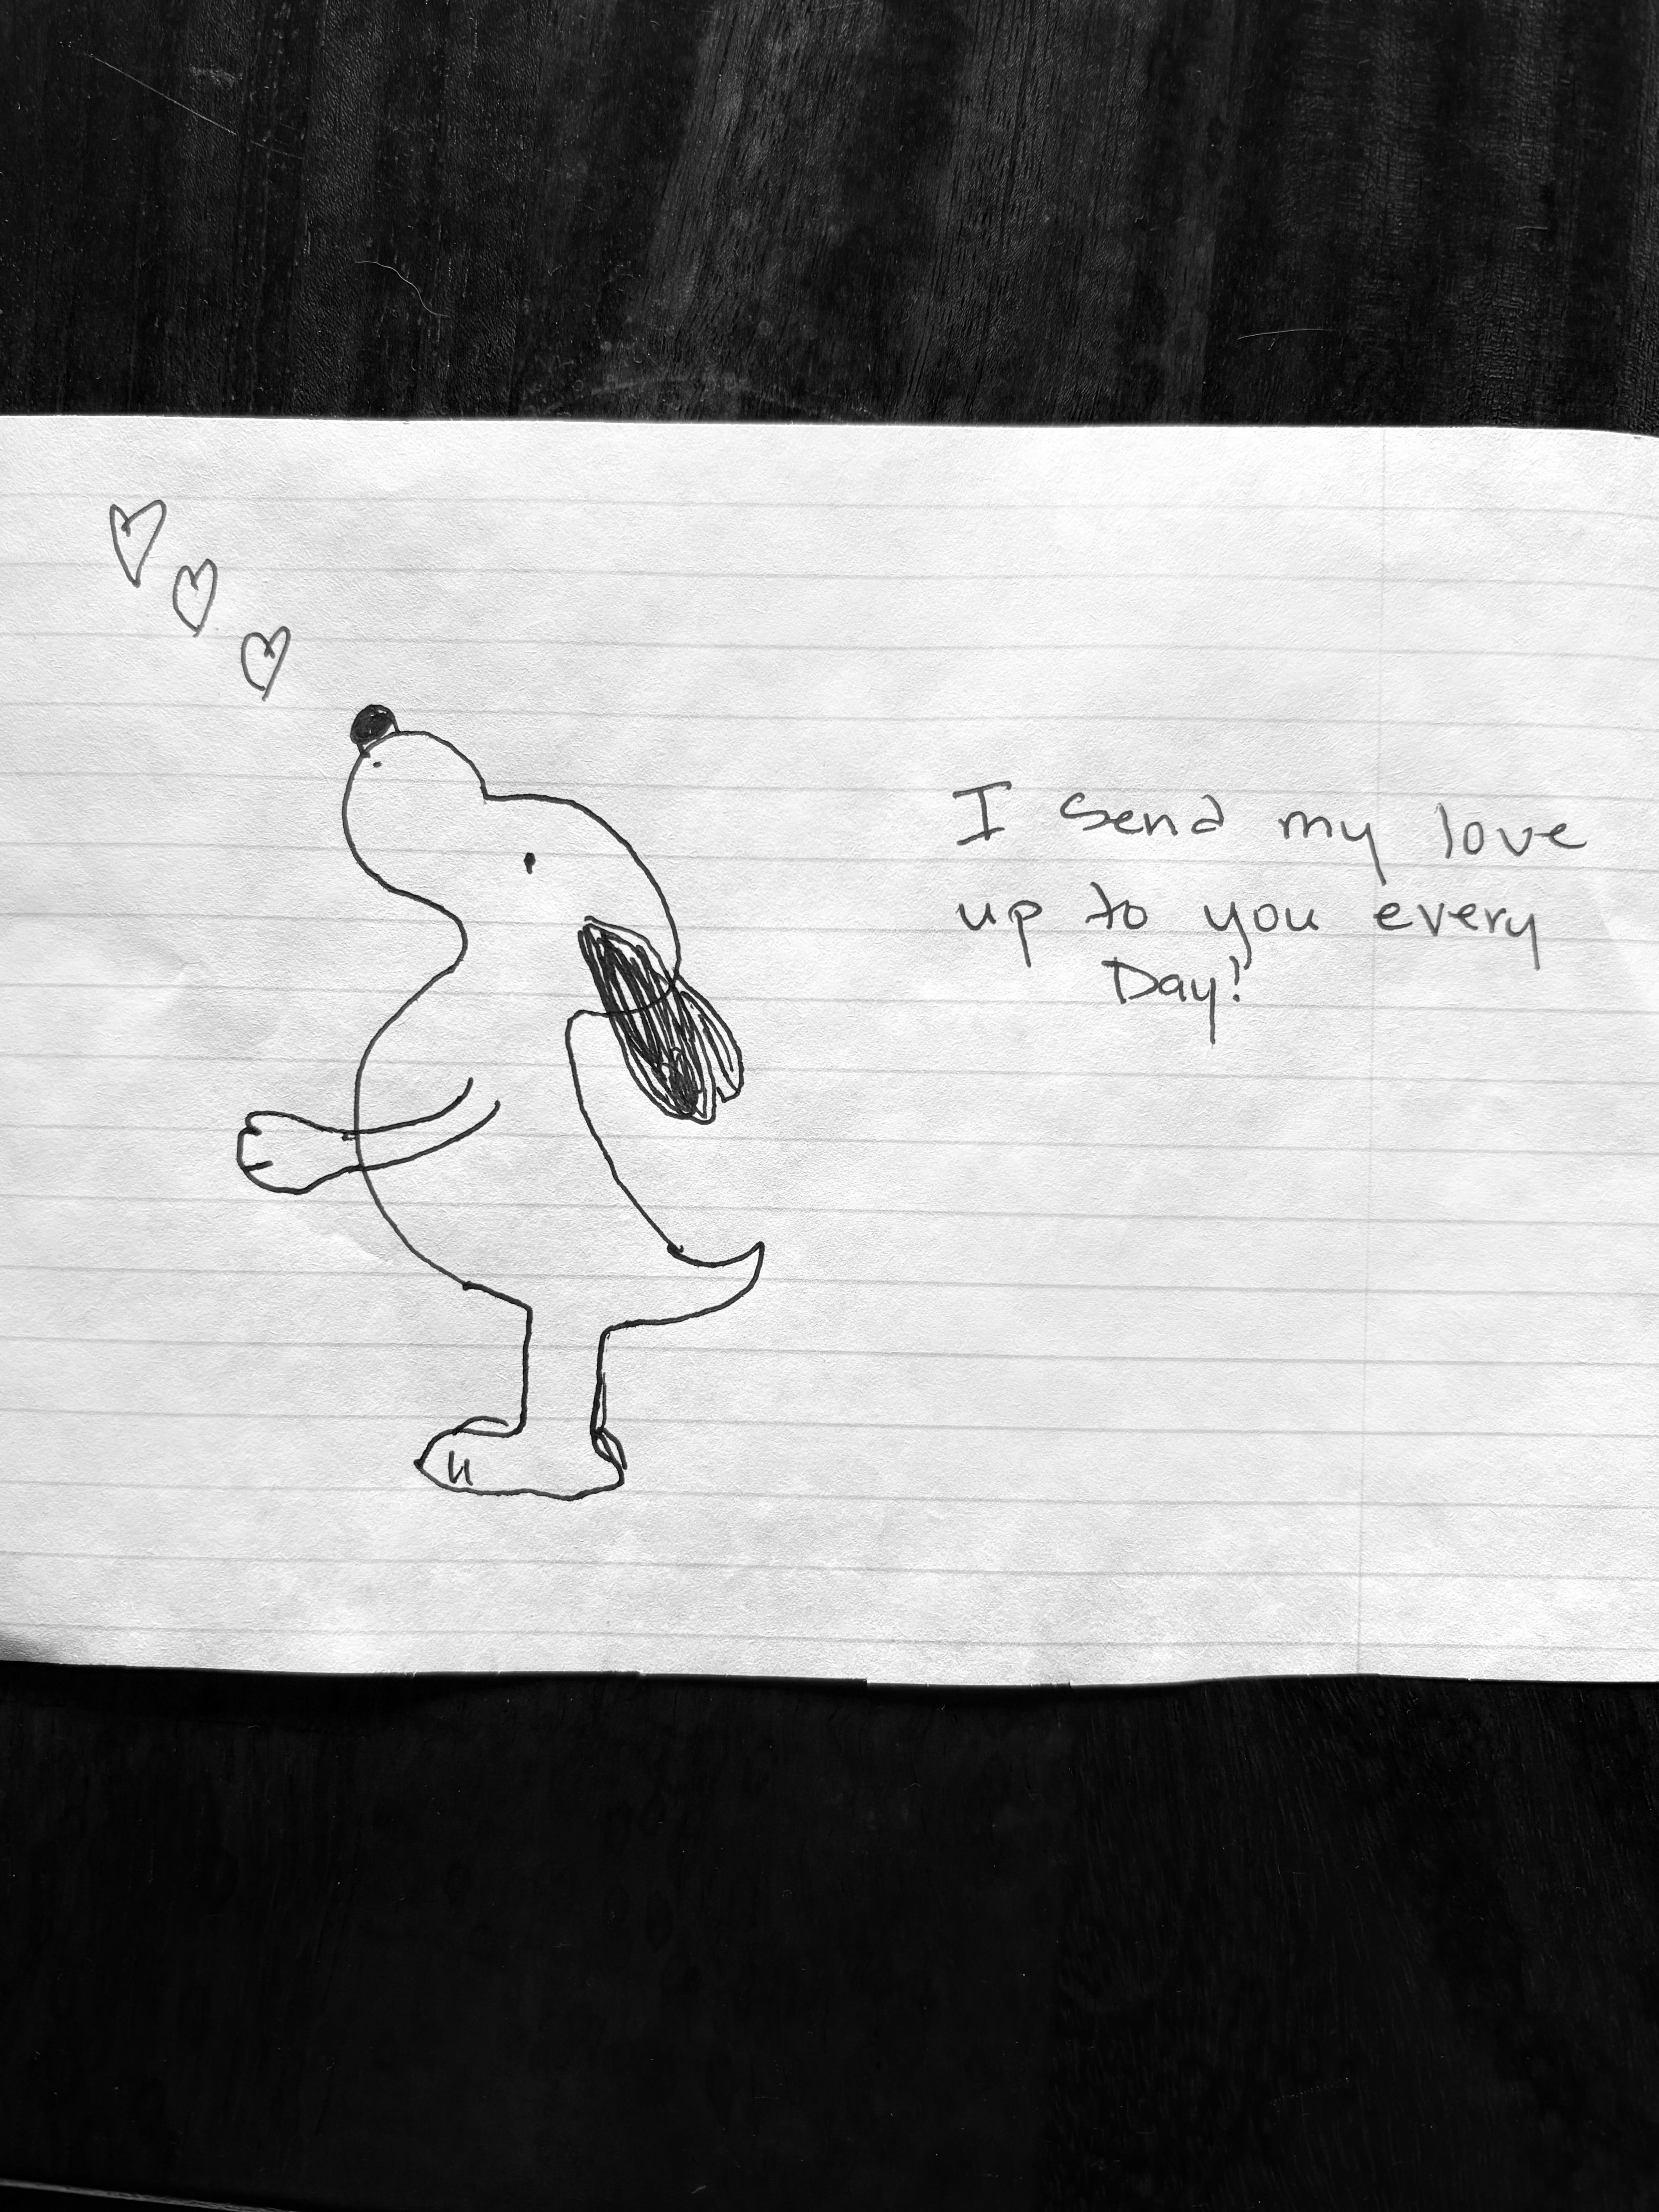 I send my love
up to you every
Day!